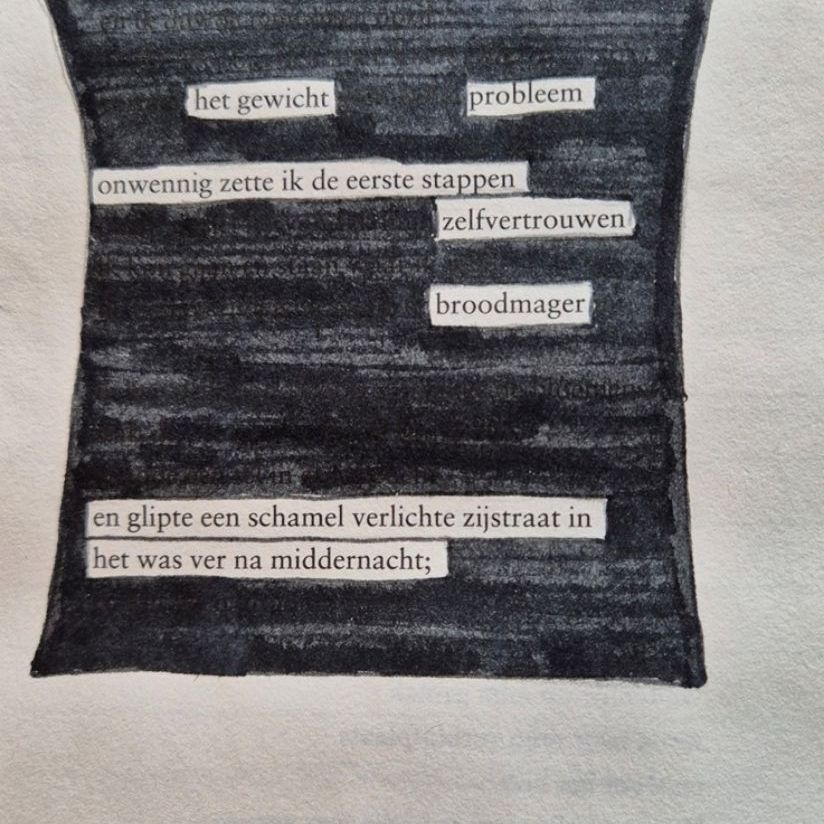 het gewicht probleem
onwennig zette ik de eerste stappen
zelfvertrouwen
broodmager
en glipte een schamel verlichte zijstraat in
het was ver na middernacht;